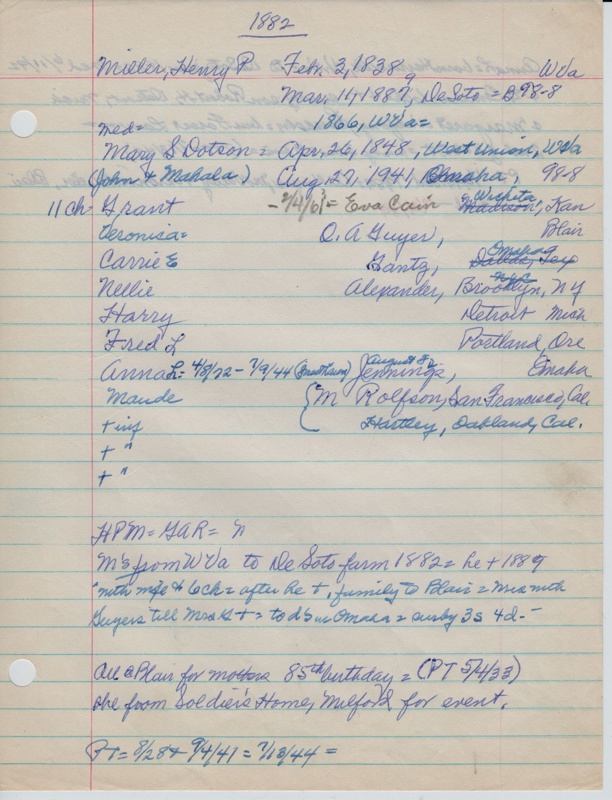 1882
Miller, Henry P. Feb. 3, 1838 WVa
Mar. 11, 1887, 9 DeSoto = B 98-8
med= 1866, WVa=
Mary S Dotson = Apr. 26, 1848, West Union, WVa
(John & Mahala) Aug. 27, 1941, Omaha, 98-8
11 ch- Grant - 2/4/61 = Eva Cain Madison, Wichita, Kan
Veronica= O. A Guyer, Blair
Carrie E Gantz, Dallas, Tex Omaha
Nellie Alexander, Brooklyn, NY NYC
Harry Detroit Mich
Fred L Portland, Ore
Anna L= 4/8/72 - 7/9/44 August 8 Jennings, Omaha
Maude { M Rolfson, San Francisco, Cal
+ inf Hartley, Oakland, Cal.
+ "
+ "
HPM = GAR = n
M's from WVa to DeSoto farm 1882 = he + 1889
with wife & 6 ch = after he +, family to Blair = Mrs M with
Guyers till Mrs G + = to d's in Omaha = surv by 3s 4d -
All @ Blair for mothers 85th birthday = (PT 5/4/33)
she from Soldier's Home, Milford for event.
PT = 8/28 & 9/4/41 = 7/13/44 =